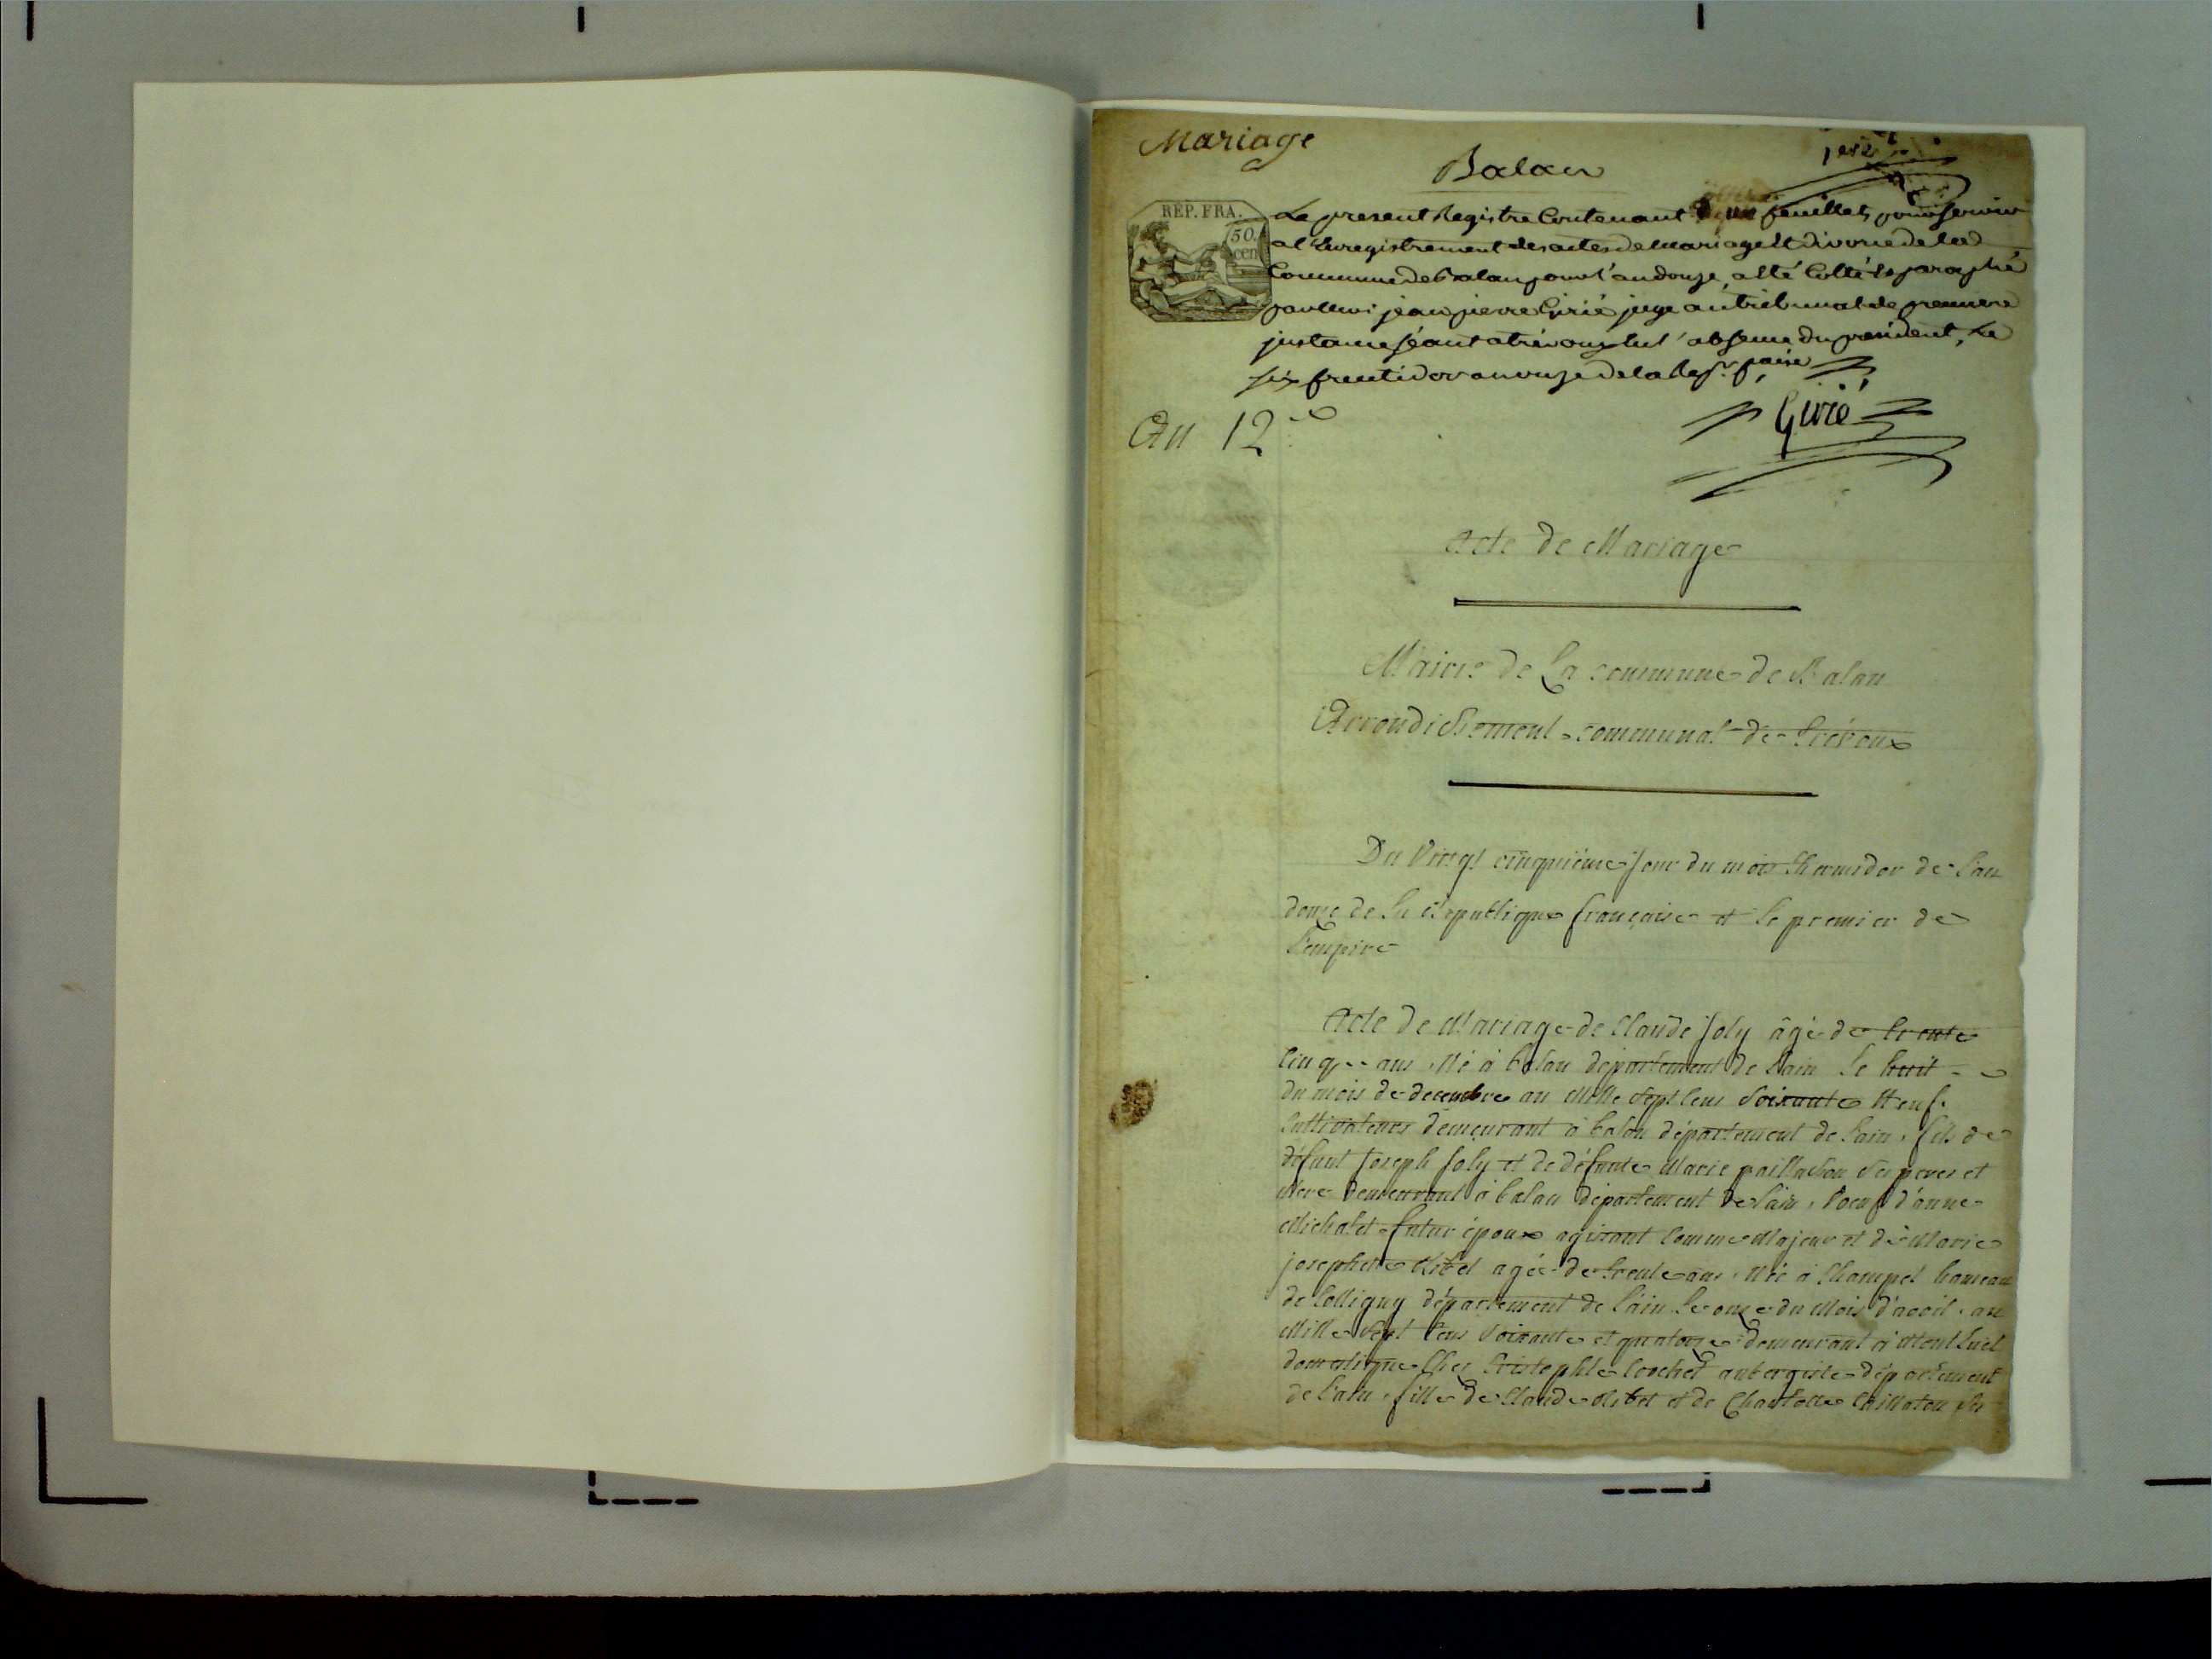 Mariage
Balan
REP. FRA.
50.
cen
Le present Registre Contenant un feuillet, pour servir
a l'Enregistrement des actes de Mariage et divorce de la
Commune de Balan pour l'an douze, a été Cotté et paraphé
par moi jean pierre Girié juge au tribunal de premiere
justance séant a trévoux, lui absence du president, Le
six fructidor an onze de la Rep. fçaise
Girié
An 12
Acte de Mariage
Mairie de La commune de Balan
Arrondissement communal de Trévoux
Du Vingt cinquième jour du mois Thermidor de l'an
douze de la république française et le premier de
l'empire
Acte de Mariage de Claude Joly âgé de trente
Cinq ans Né à balan département de l'ain le huit
du mois de decembre an Mille Sept Cens Soixante Neuf.
Cultivateur demeurant à balan département de l'ain, fils de
défunt Joseph Joly et de défunte Marie paillasson ses peres et
Mere demeurant à balan département de l'ain, Voeuf d'anne
Michalet futur époux agissant Comme Majeur et de Marie
josephete agée de trente ans, Née à Champel hameau
de Colligny département de l'ain le onze du Mois d'avril, an
Mille Sept Cens Soixante et quatorze demeurant à Montluel
domestique Chez Cristophle Cochet aubergiste département
de l'ain, fille de Claude et de Charlotte